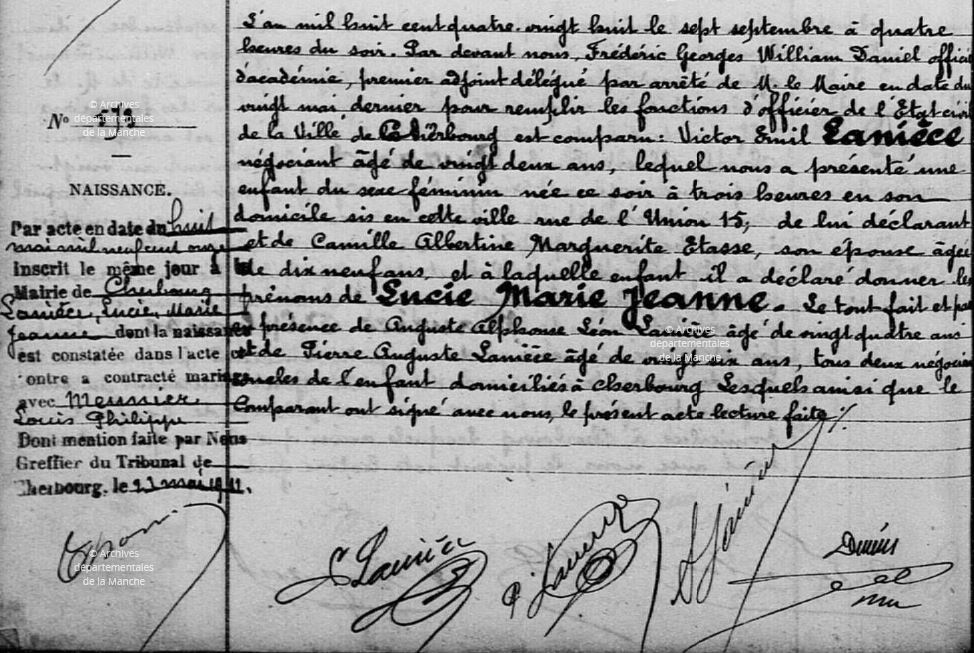 L'an mil huit cent quatre-vingt huit le sept septembre à quatre
heures du soir. Par devant nous, Frédéric Georges William Daniel officier
d'académie, premier adjoint délégué par arrêté de M. le Maire en date du
vingt mai dernier pour remplir les fonctions d'officier de l'Etat civil
de la Ville de Cherbourg est comparu: Victor Emil Laniéce
négociant âgé de vingt deux ans, lequel nous a présenté une
enfant du sexe féminin née ce soir à trois heures en son
domicile sis en cette ville rue de l'Union 15, de lui déclarant
et de Camille Albertine Marguerite Etasse, son épouse âgée
de dix neuf ans, et à laquelle enfant il a déclaré donner les
prénoms de Lucie Marie Jeanne. Le tout fait et
en présence de Auguste Alphonse Léon Laniéce âgé de vingt quatre ans
et de Pierre Auguste Laniéce âgé de vingt six ans, tous deux négociants
oncles de l'enfant domiciliés à Cherbourg Lesquels ainsi que le
Comparant ont signé avec nous, le présent acte lecture faite ./.
No
NAISSANCE.
Par acte en date du huit
mai mil neuf cent onze
inscrit le même jour à
Mairie de Cherbourg
Laniéce, Lucie, Marie
Jeanne dont la naissance
est constatée dans l'acte
contre a contracté mariage
avec Meunier
Louis Philippe
Dont mention faite par Nous
Greffier du Tribunal de
Cherbourg, le 23 mai 1911.
Laniéce
© Archives
départementales
de la Manche
© Archives
départementales
de la Manche
© Archives
départementales
de la Manche